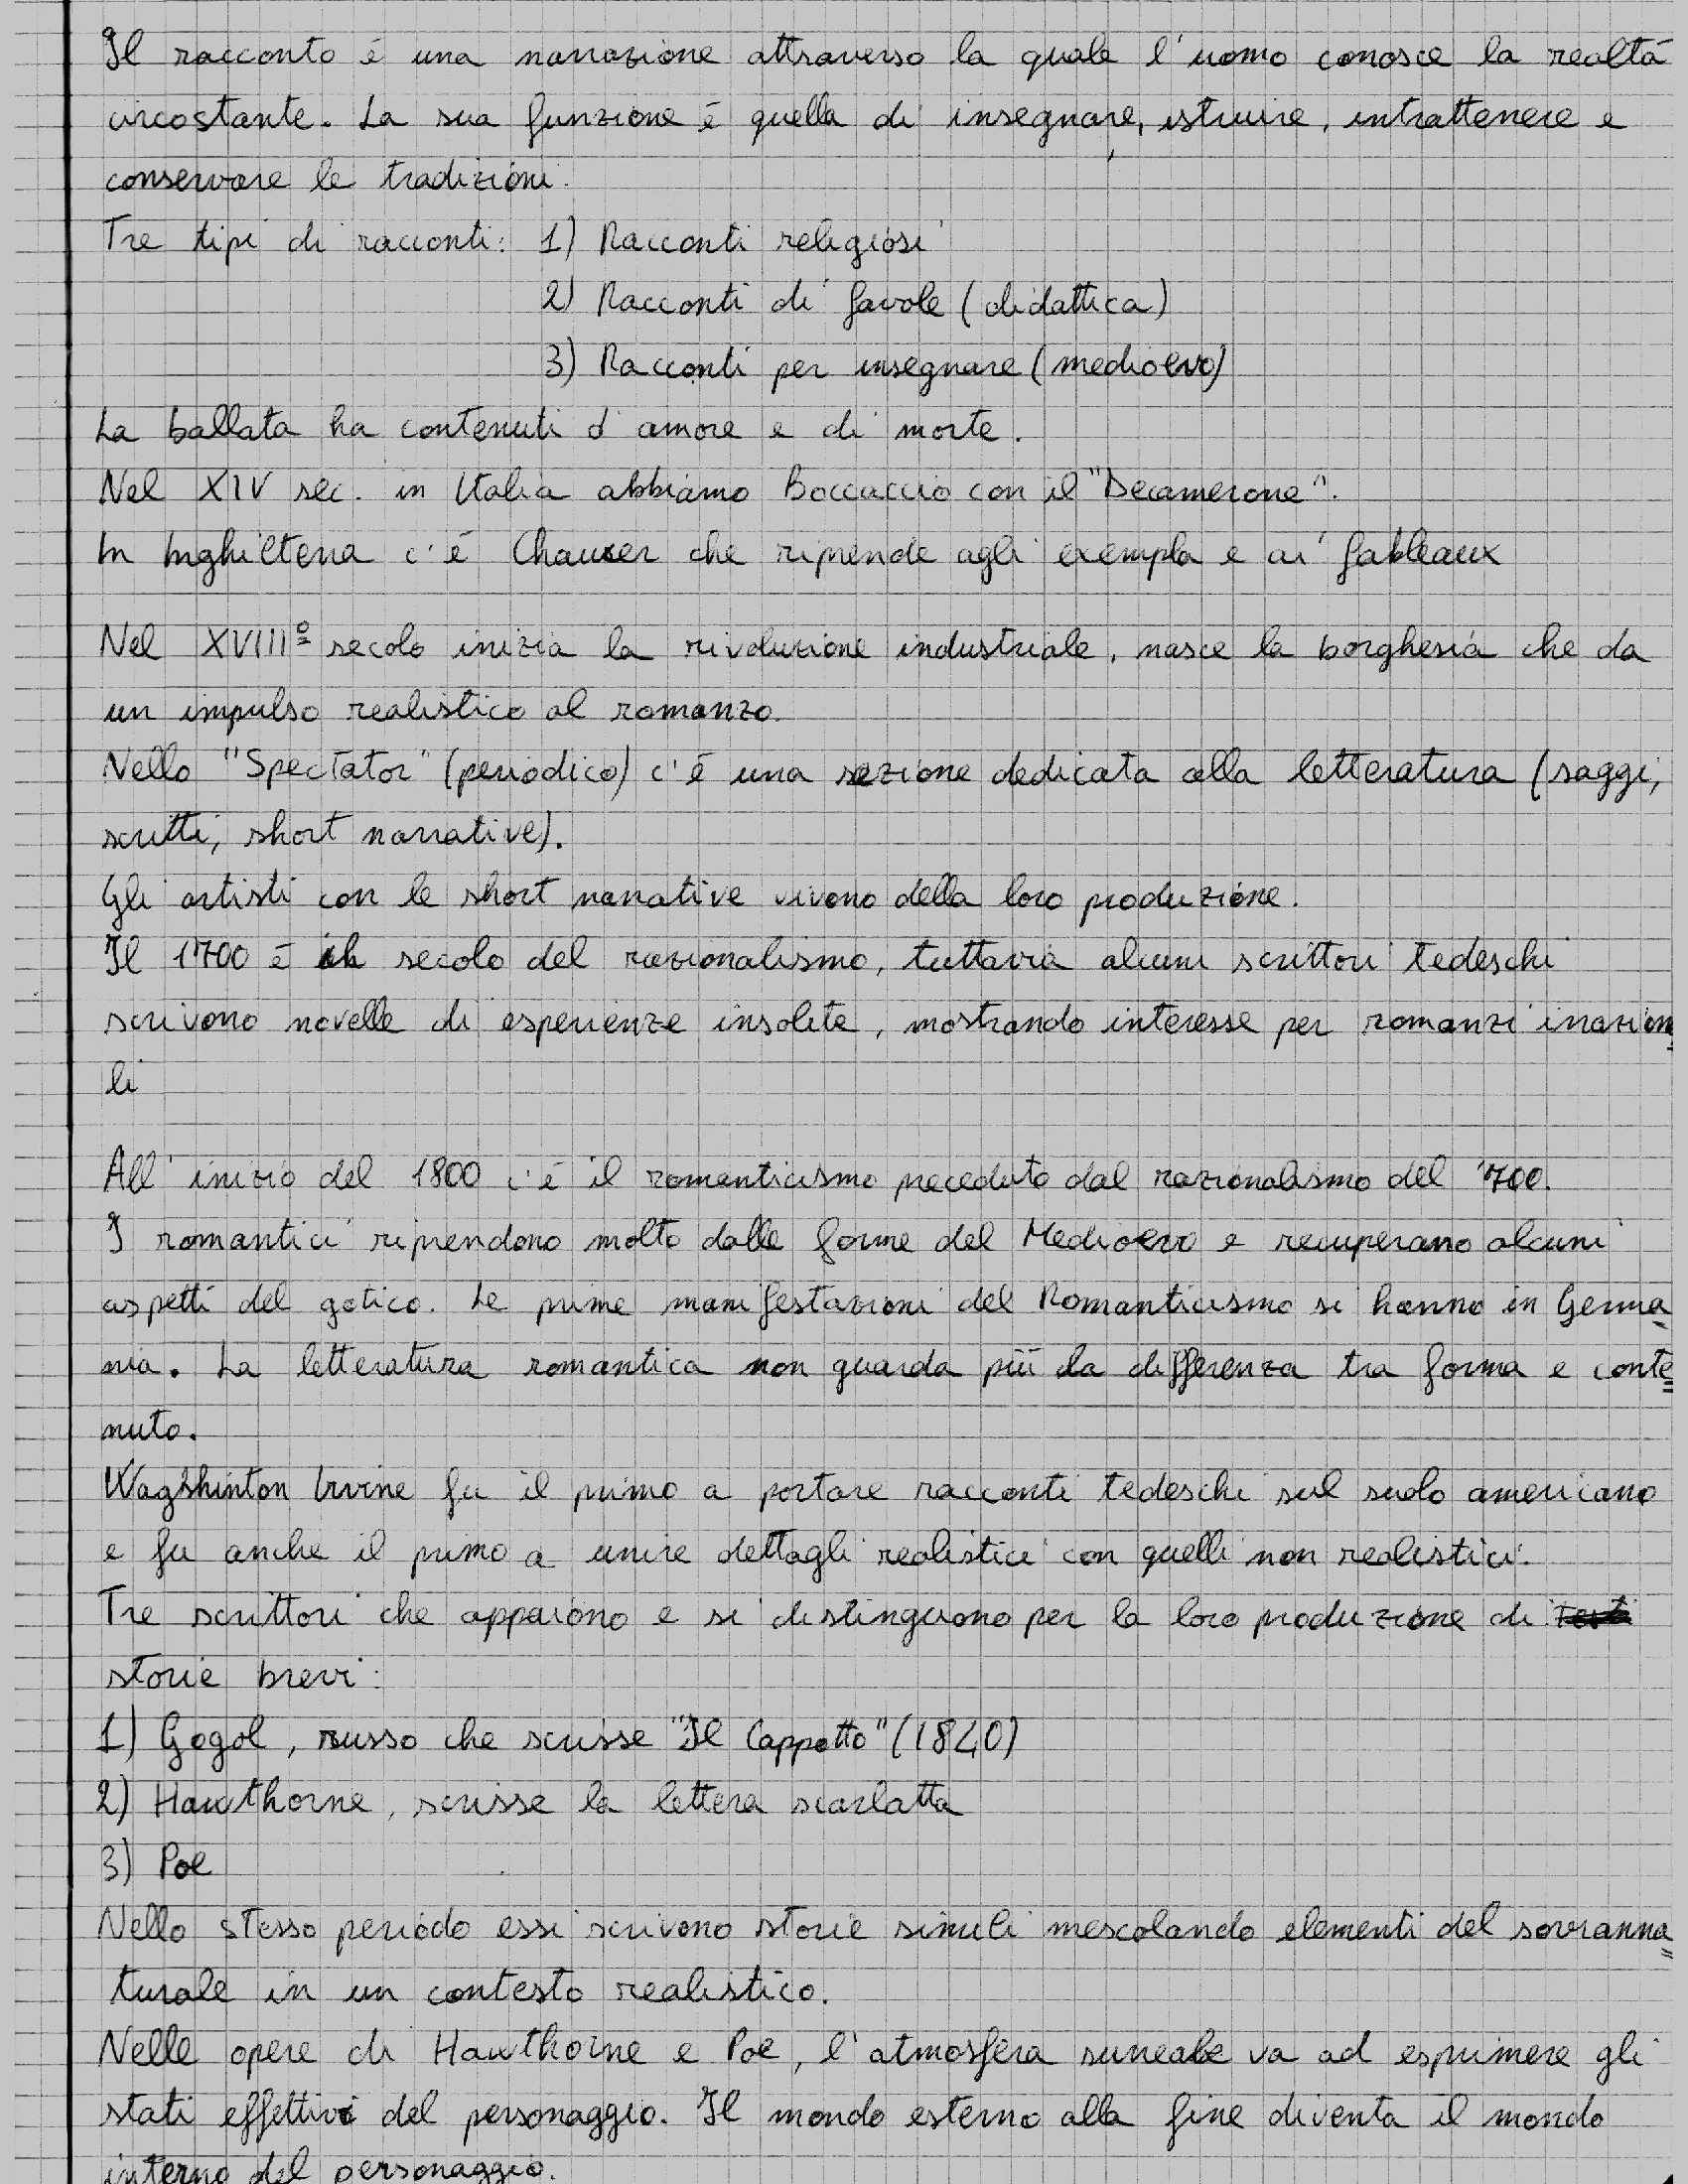 Il racconto è una narrazione attraverso la quale l'uomo conosce la realtà
circostante. La sua funzione è quella di insegnare, istruire, intrattenere e
conservare le tradizioni.
Tre tipi di racconti: 1) Racconti religiosi
2) Racconti di favole (didattica)
3) Racconti per insegnare (medioevo)
La ballata ha contenuti d'amore e di morte.
Nel XIV sec. in Italia abbiamo Boccaccio con il "Decamerone".
In Inghilterra c'è Chaucer che riprende agli exempla e ai fableaux
Nel XVIIIº secolo inizia la rivoluzione industriale, nasce la borghesia che da
un impulso realistico al romanzo.
Nello "Spectator" (periodico) c'è una sezione dedicata alla letteratura (saggi,
scritti, short narrative).
Gli artisti con le short narrative vivono della loro produzione.
Il 1700 è il secolo del razionalismo, tuttavia alcuni scrittori tedeschi
scrivono novelle di esperienze insolite, mostrando interesse per romanzi irraziona
li
All'inizio del 1800 c'è il romanticismo preceduto dal razionalismo del '700.
I romantici riprendono molto dalle forme del Medioevo e recuperano alcuni
aspetti del gotico. Le prime manifestazioni del Romanticismo si hanno in Germa
nia. La letteratura romantica non guarda più la differenza tra forma e conte
nuto.
Wagshinton Irvine fu il primo a portare racconti tedeschi sul suolo americano
e fu anche il primo a unire dettagli realistici con quelli non realistici.
Tre scrittori che appaiono e si distinguono per la loro produzione di
storie brevi:
1) Gogol, russo che scrisse "Il Cappotto" (1840)
2) Hawthorne, scrisse la lettera scarlatta
3) Poe
Nello stesso periodo essi scrivono storie simili mescolando elementi del sovranna
turale in un contesto realistico.
Nelle opere di Hawthorne e Poe, l'atmosfera surreale va ad esprimere gli
stati effettivi del personaggio. Il mondo esterno alla fine diventa il mondo
interno del personaggio.